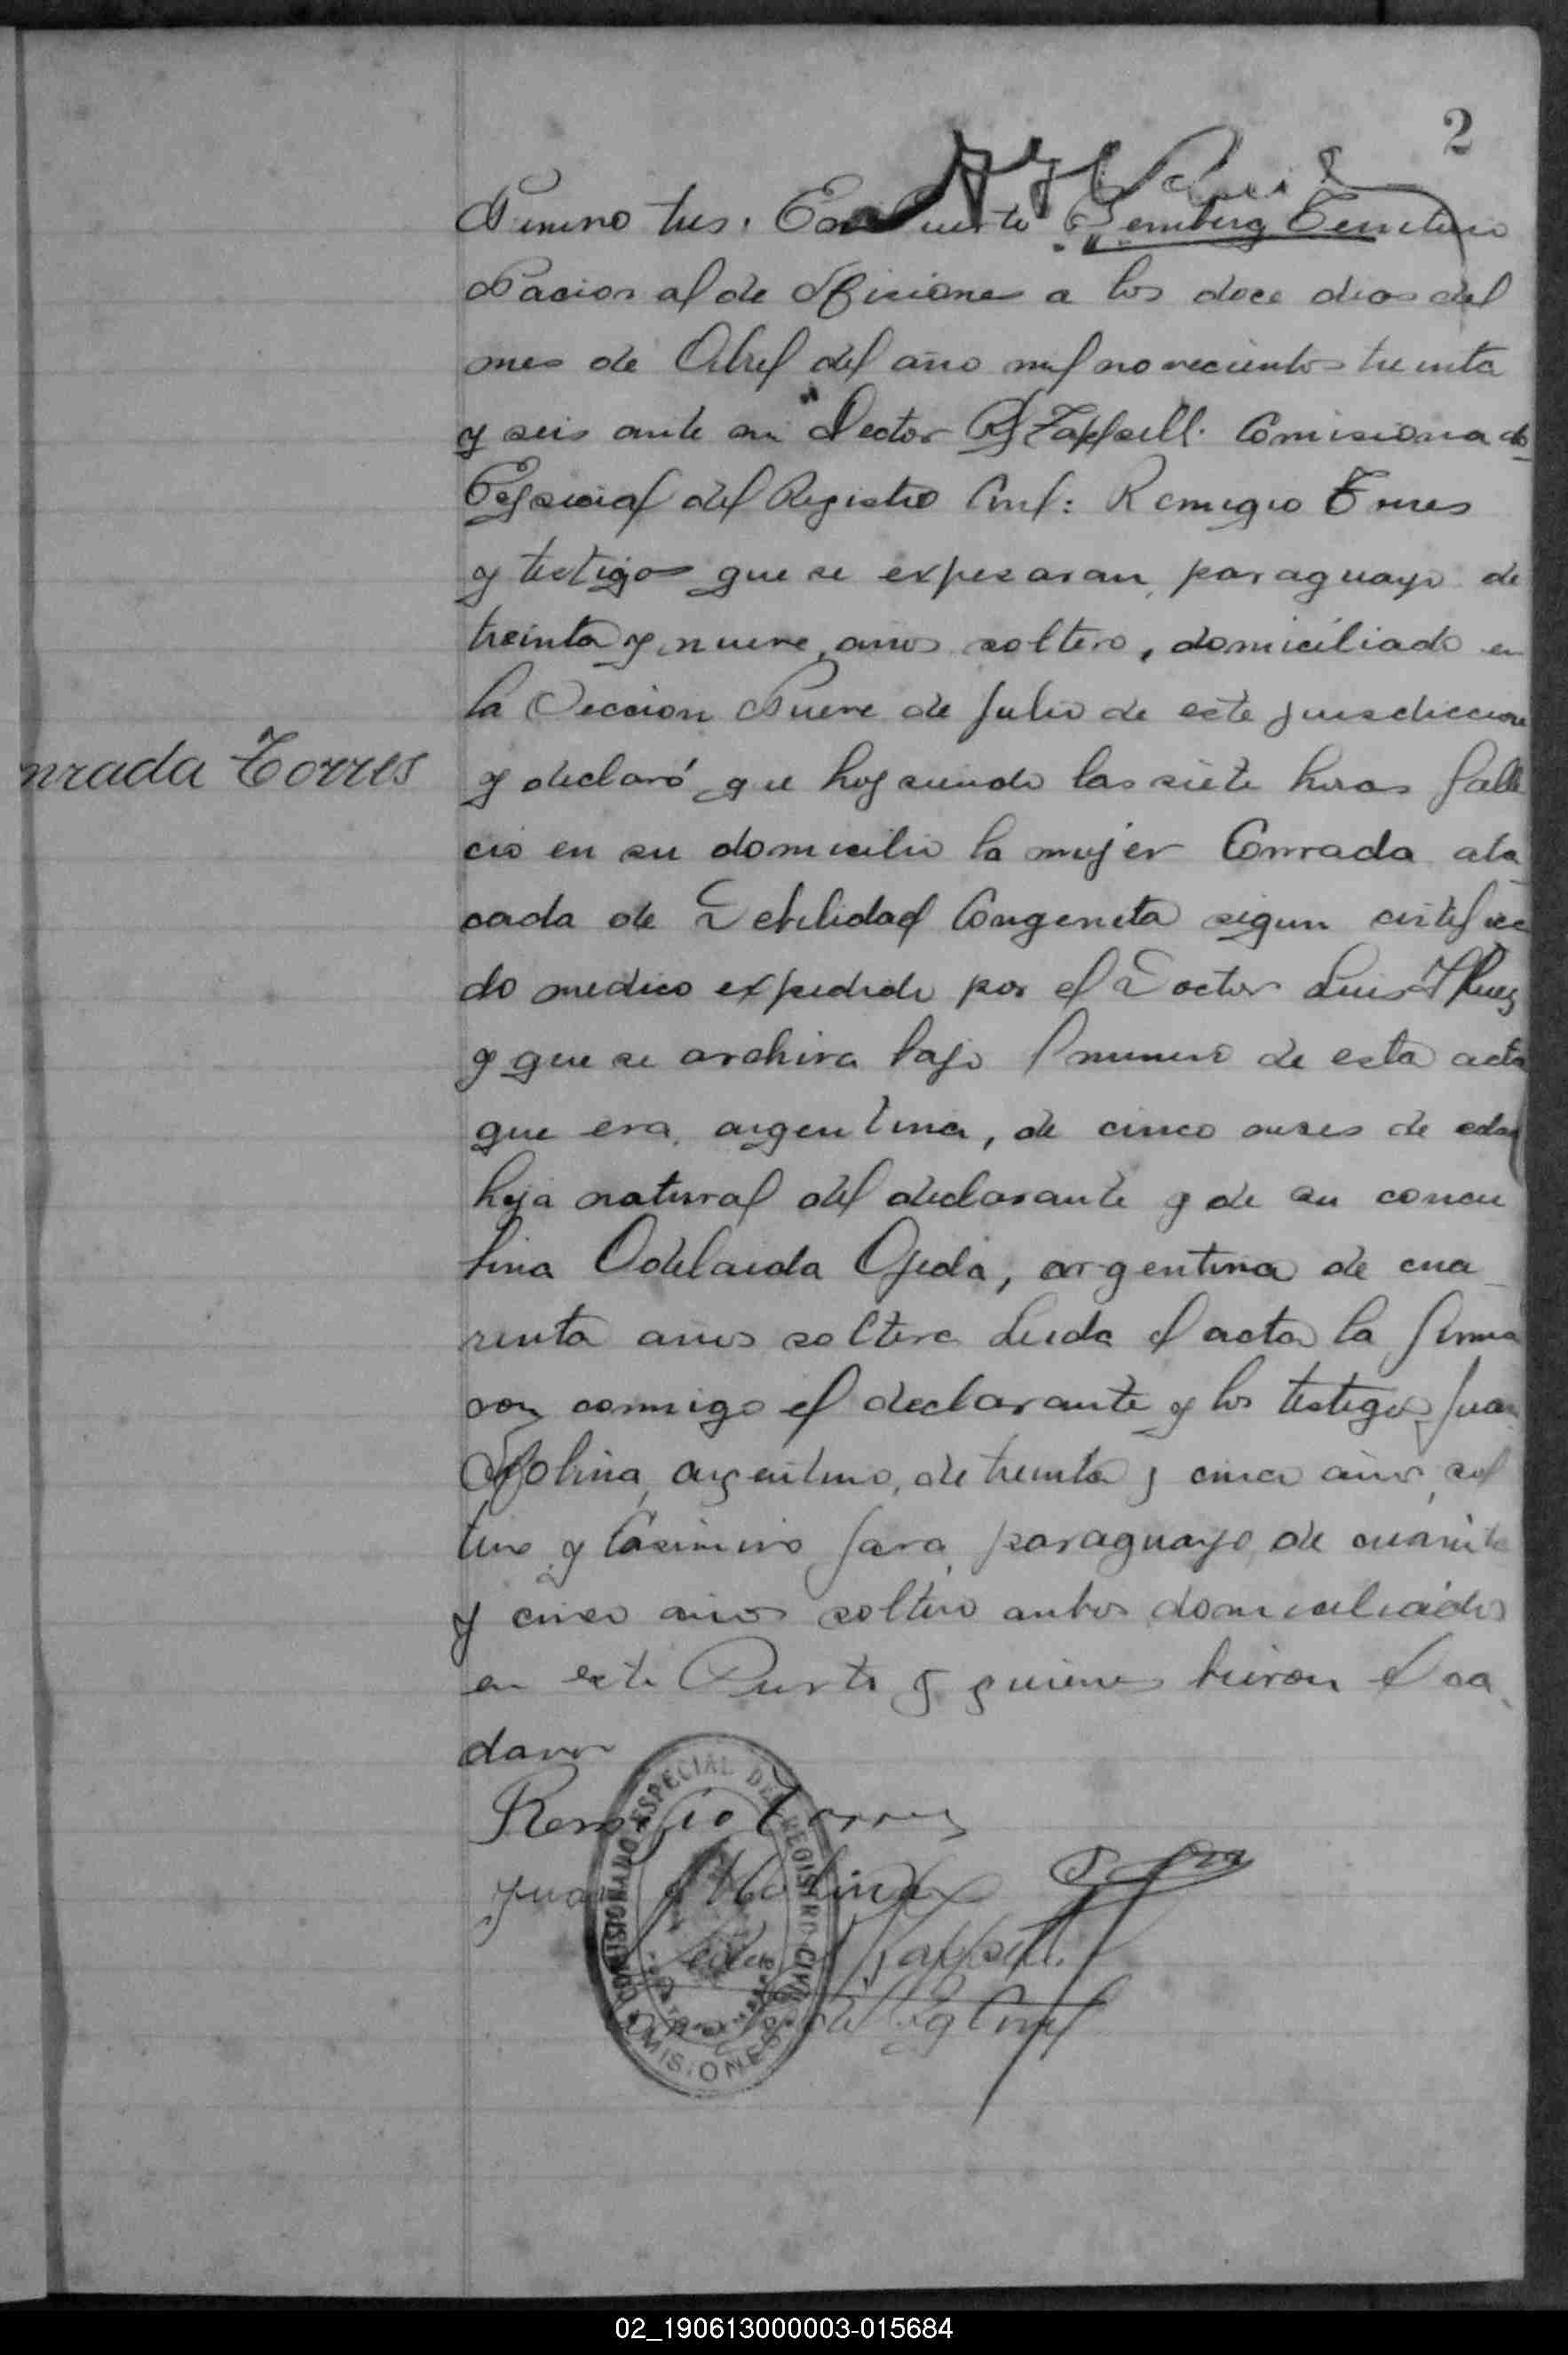 2
Numero tres. En Puerto Bemberg Territorio
Nacional de Misiones a los doce dias del
mes de Abril del año mil novecientos treinta
y seis ante mi Hector Comisionado
Especial del Registro Civil: Remigio Torres
y testigos que se expesaran, paraguayo de
treinta y nueve, años soltero, domiciliado en
la Seccion Nueve de Julio de este jurisdiccion
nrada Torres
y declaró que hoy siendo las siete horas falle
cio en su domicilio la mujer Conrada ata
cada de Debilidad Congenita segun certifica
do medico expedido por el Doctor Luis
y que se archiva bajo l numero de esta acta
que era, argentina, de cinco meses de edad
hija natural del declarante y de su concu
bina Adelaida Ojeda, argentina de cua
renta años soltera Leida el acta la firma
ron conmigo el declarante y los testigos Juan
Molina, argentino, de treinta y cinco años, sol
tero y Casimiro Jara, paraguayo, de cuarenta
y cinco años soltero ambos domiciliados
en este Puerto y quienes vieron el ca
daver
Remigio Torres
Juan Molina
COMISIONADO ESPECIAL DEL REGISTRO CIVIL
MISIONES
02_190613000003-015684